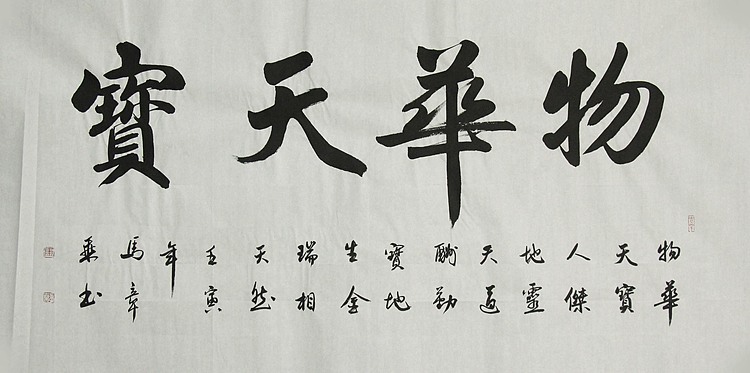 物華天寶
物華
天寶
人傑
地靈
天道
酬勤
寶地
生金
瑞相
天然
壬寅
年
馬章
乘书